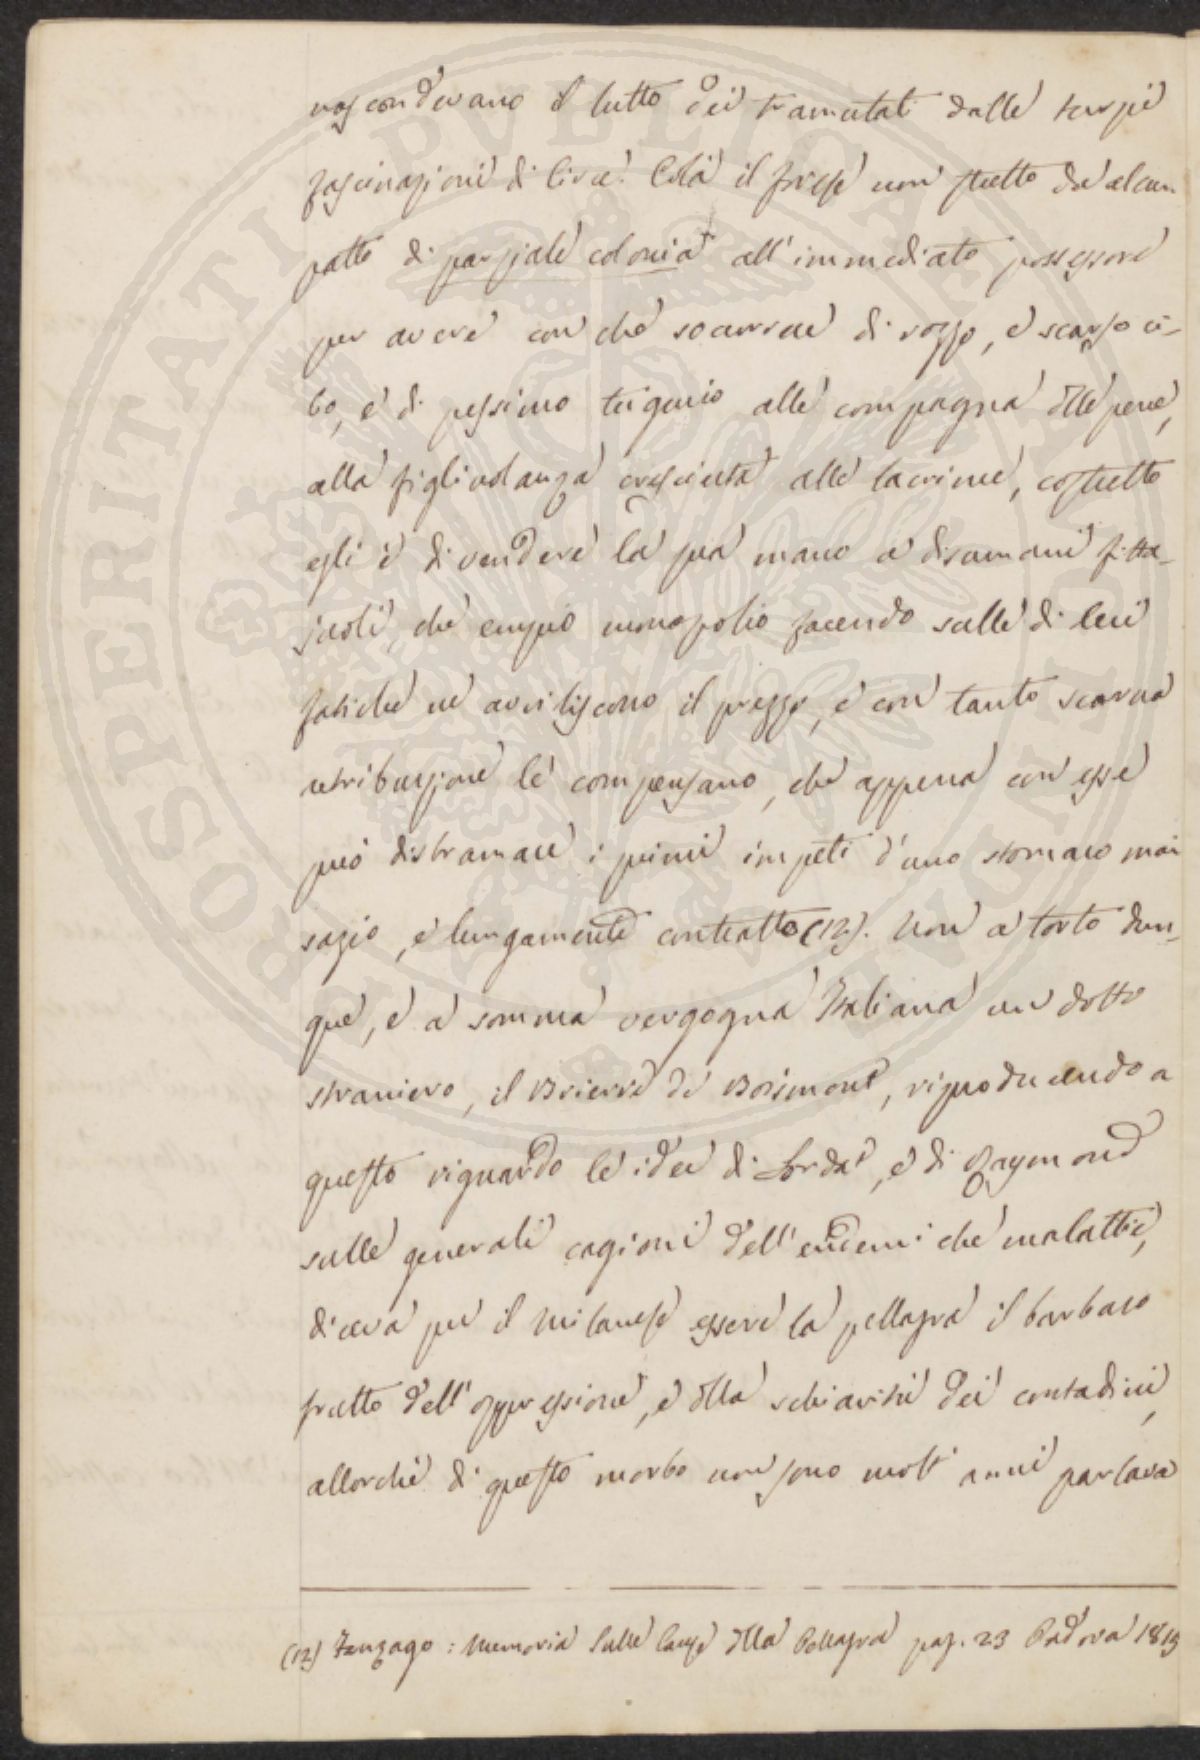 nascondevano il lutto dei tramutati dalle turpi
fascinazioni di Circe. Colà il  non stretto da alcun
patto di parziale colonia all'immediato possessore
per avere con che soccorrere di rozzo, e scarso ci-
bo, e di pessimo tugurio alla compagna delle pene,
alla figliuolanza cresciuta alle lacrime, costretto
egli è di vendere la sua mano a disumani fitta-
juoli, che empio monopolio facendo sulle di lui
fatiche ne avviliscono il prezzo, e con tanto scarna
retribuzione le compensano, che appena con esse
può disbramare i primi impeti d'uno stomaco mai
sazio, e lungamente contratto (12). Non a torto dun-
que, e a somma vergogna Italiana un dotto
straniero, il Brierre de Boismont, riproducendo a
questo riguardo le idee di Lordat, e di Raymond
sulle generali cagioni dell'endemiche malattie,
diceva per il Milanese essere la pellagra il barbaro
frutto dell'oppressione, e della schiavitù dei contadini,
allorché di questo morbo non sono molt'anni parlava
(12) Fanzago: Memoria Sulle Cause della Pellagra pag. 23 Padova 1815
PROSPERITATI PVBLICAE AVGENDAE